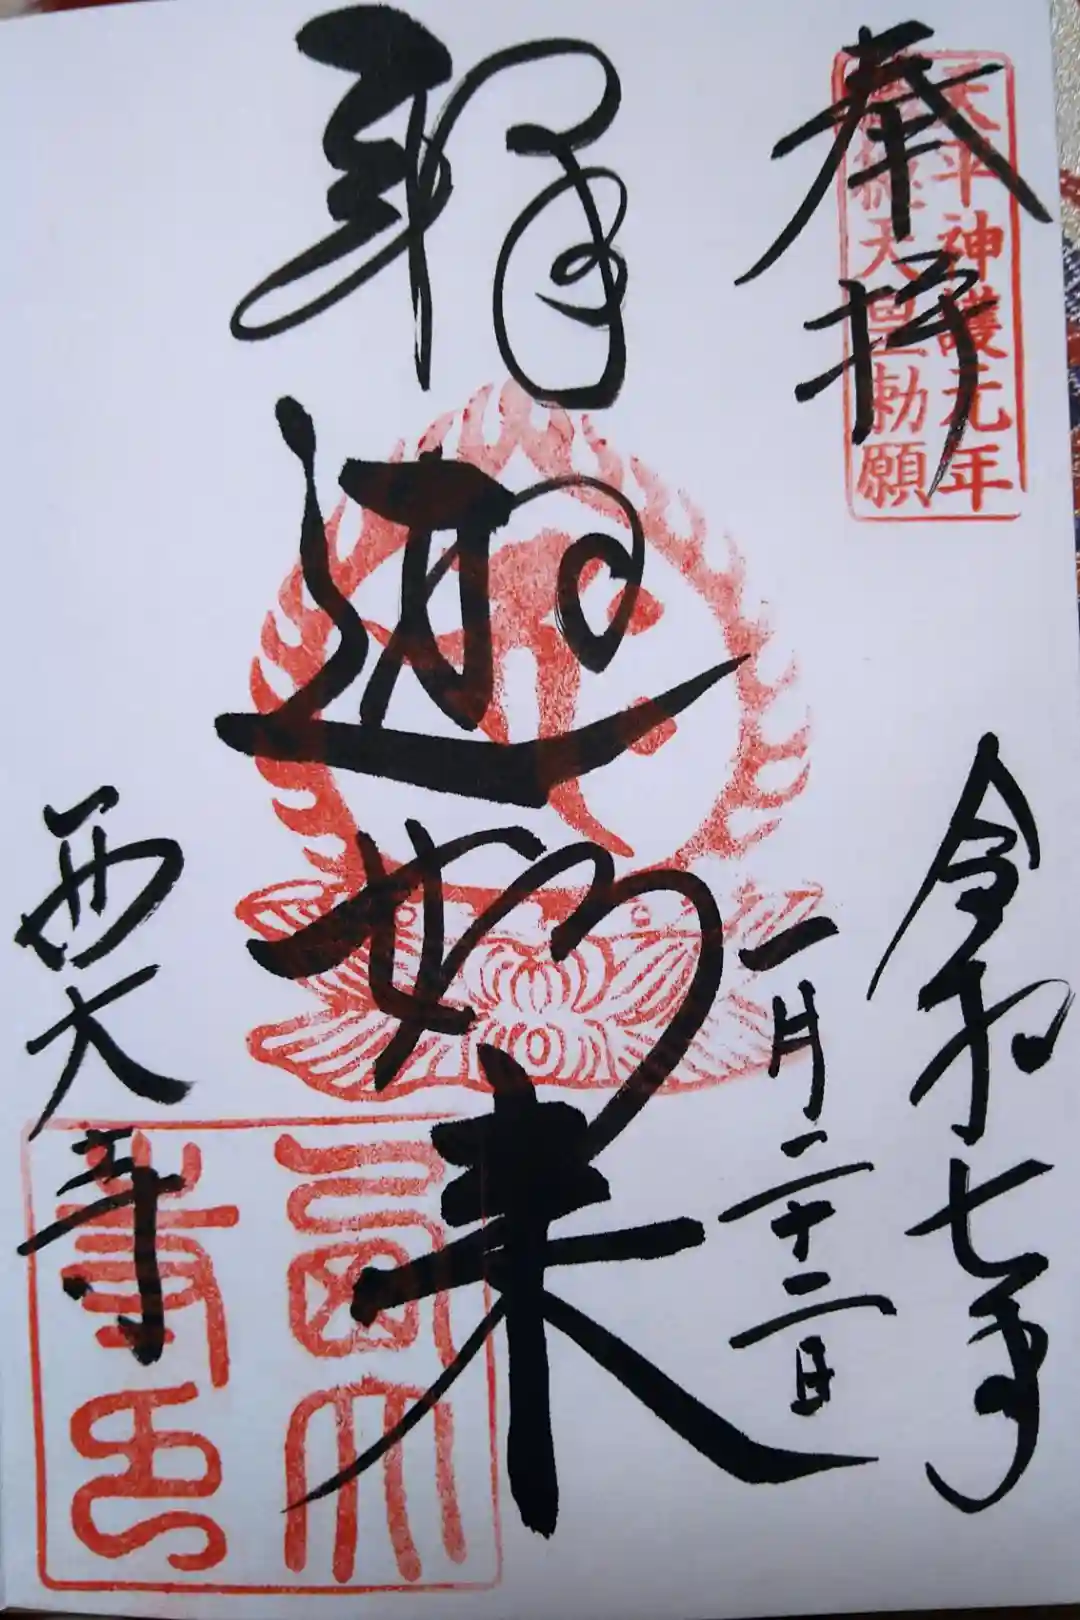 奉拝
天平神護元年
称徳天皇勅願
令和七年
一月二十二日
釈迦如来
西大寺
西大寺印